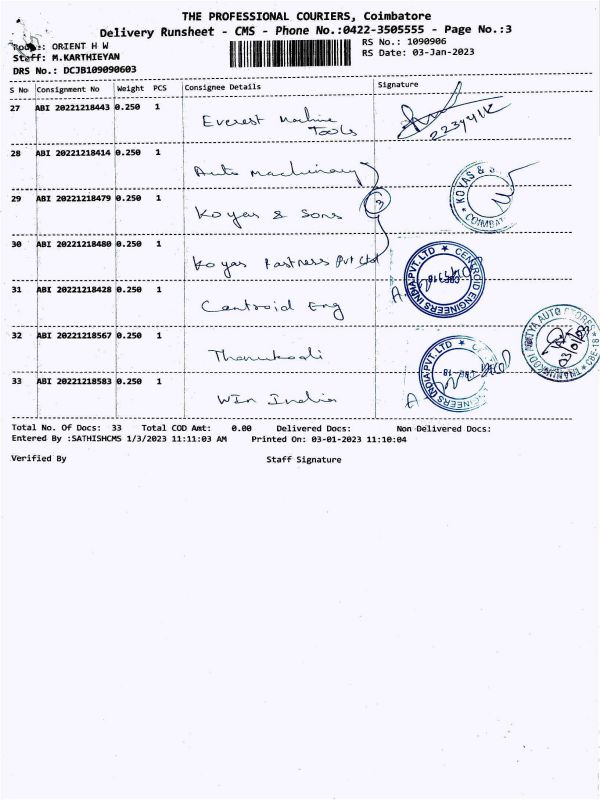 THE PROFESSIONAL COURIERS, Coimbatore
Delivery Runsheet - CMS - Phone No.:0422-3505555 - Page No.:3
Route: ORIENT H W
RS No.: 1090906
Staff: M.KARTHIEYAN
RS Date: 03-Jan-2023
DRS No.: DCJB109090603
S No Consignment No Weight PCS Consignee Details Signature
27 ABI 20221218443 0.250 1 Everest Machine Tools
223441K
28 ABI 20221218414 0.250 1 Auto Machinary
29 ABI 20221218479 0.250 1 Koyas & Sons
3
KOYAS & S
COIMBAT
30 ABI 20221218480 0.250 1 Koyas Partners Pvt Ltd
CENTROID ENGINEERS INDIA PVT. LTD ★
CBE-18
31 ABI 20221218428 0.250 1 Centroid Eng
32 ABI 20221218567 0.250 1 Thanukodi
ENGINEERS INDIA PVT. LTD ★
DHANUKODI NATYA AUTO STORES
CBE-18
03/01/23
33 ABI 20221218583 0.250 1 Win India
Total No. Of Docs: 33 Total COD Amt: 0.00 Delivered Docs: Non Delivered Docs:
Entered By :SATHISHCMS 1/3/2023 11:11:03 AM Printed On: 03-01-2023 11:10:04
Verified By Staff Signature